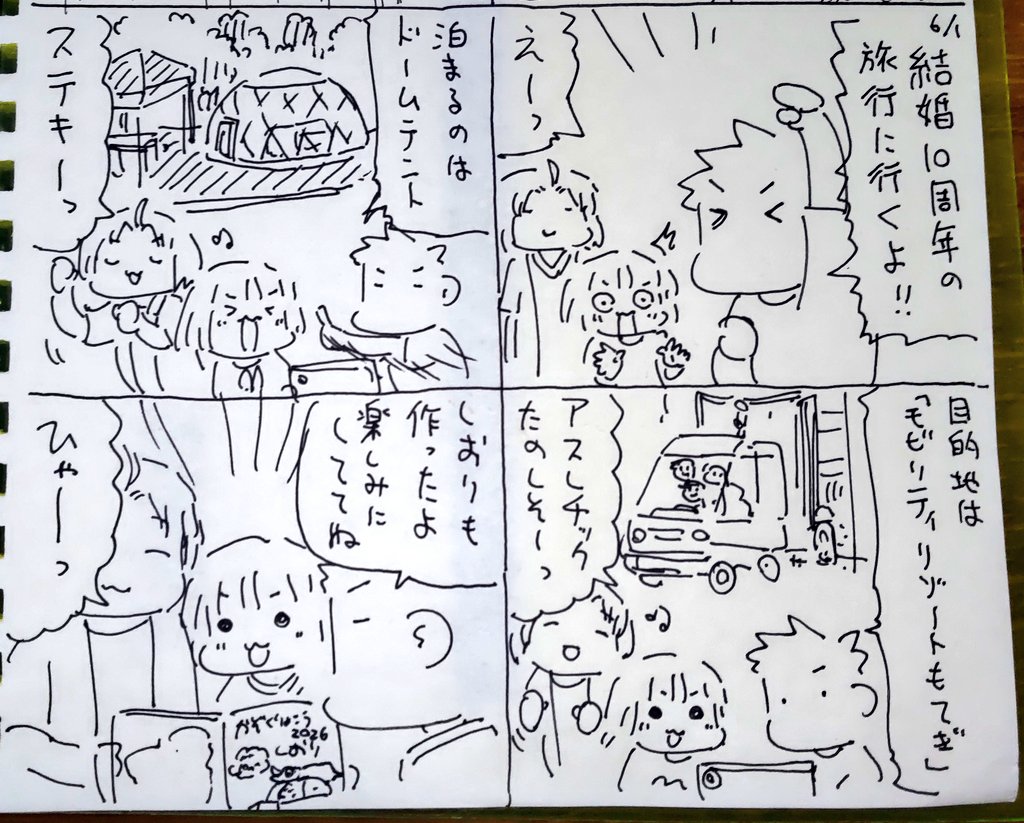 6/1
結婚10周年の
旅行に行くよ!!
えーっ
目的地は
「モビリティリゾートもてぎ」
アスレチック
たのしそーっ
泊まるのは
ドームテント
ステキーっ
しおりも
作ったよ
楽しみに
しててね
かぞくりょこう
2026
しおり
ひゃーっ